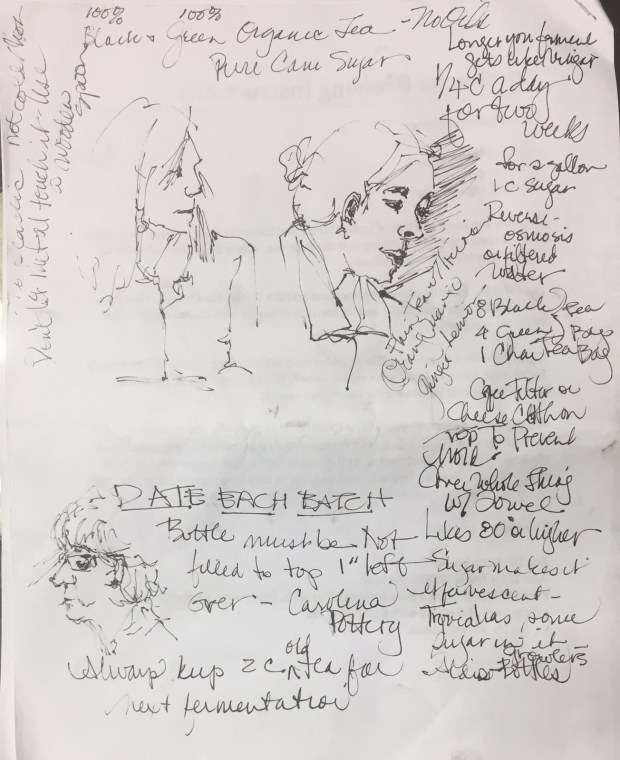 100% 100%
Black & Green Organic Tea - No Oils
Pure Cane Sugar
Don't let metal touch it - Use
a wooden
spoon
Longer you ferment
gets like Vinegar
1/4 C a day
for two
weeks
for a gallon
1 C Sugar
Reverse-
osmosis
or filtered
Water
8 Black Tea
4 Green Bags
1 Chai Tea Bag
Plain Tea
Organic
Ginger Lemon
Coffee Filter or
Cheese Cloth on
Top To Prevent
Mold.
Cover Whole Thing
w/ Towel
Likes 80° or higher
Sugar makes it
effervescent -
some
Sugar in it -
Growlers
Bottles
DATE EACH BATCH
Bottle must be Not
filled to top 1" left
over - Carolina
Pottery
Always keep 2 C. old tea for
next fermentation